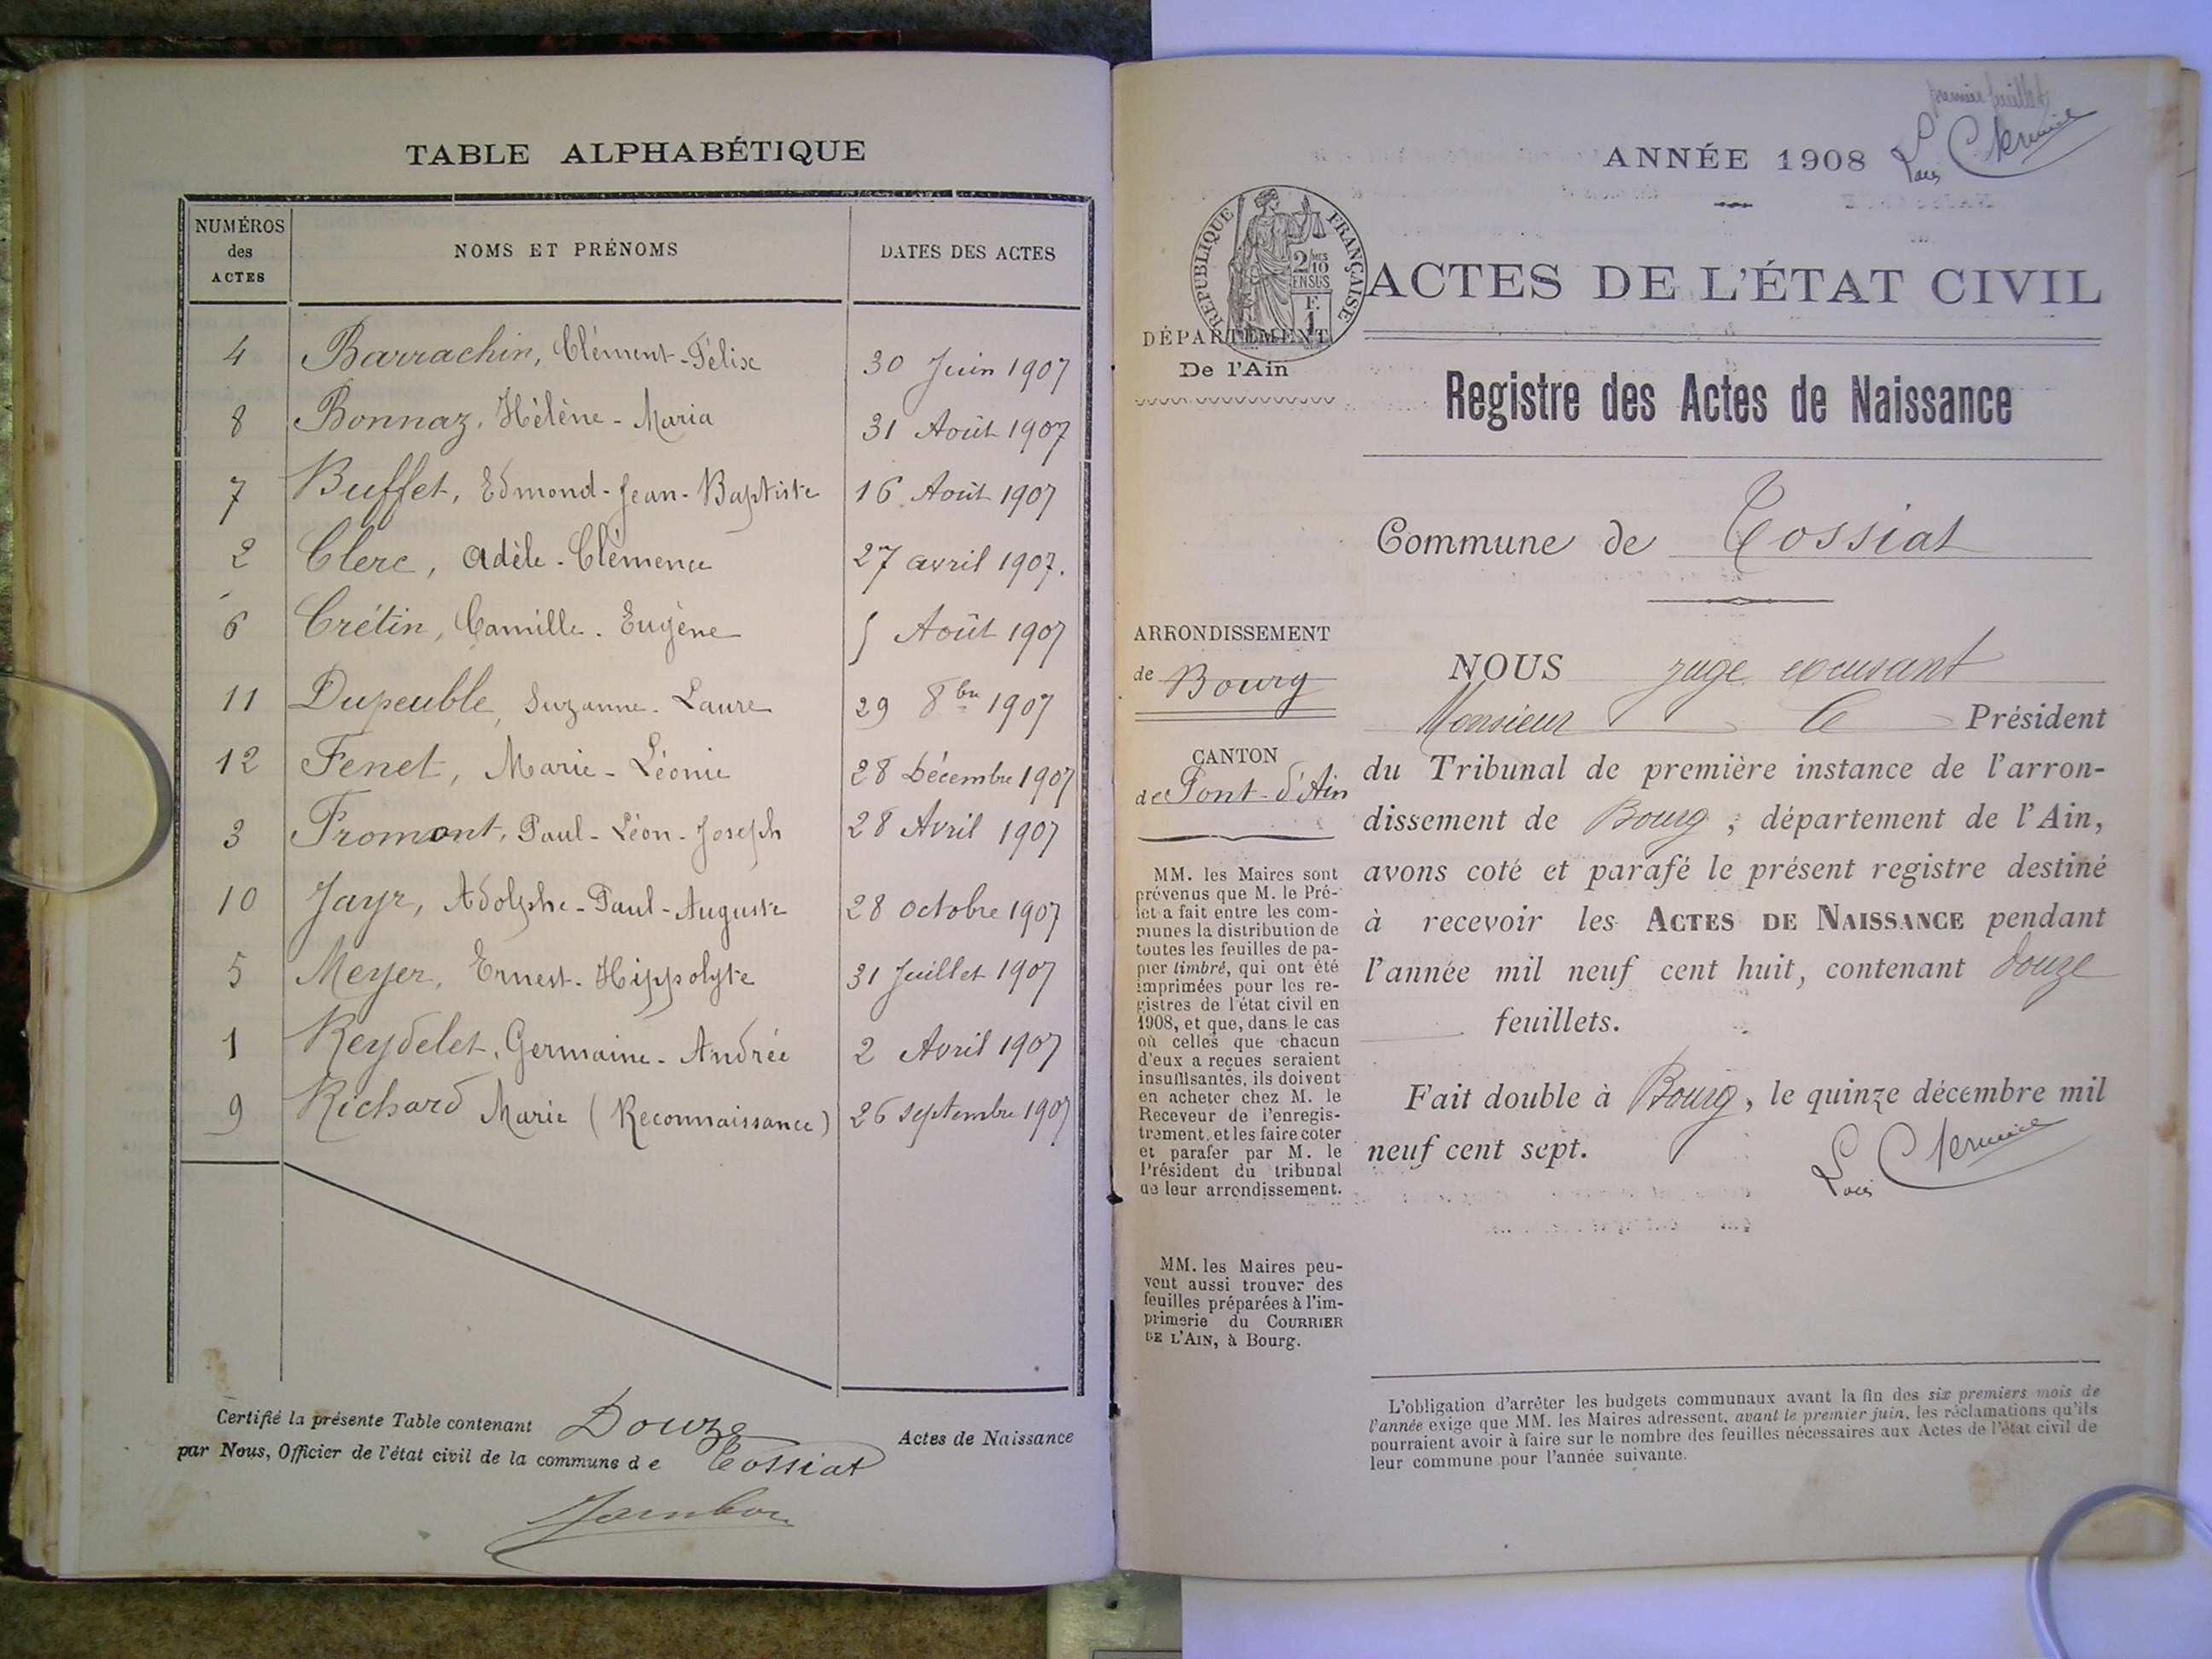 TABLE ALPHABÉTIQUE
NUMÉROS des ACTES NOMS ET PRÉNOMS DATES DES ACTES
4 Barrachin, Clément-Félix 30 Juin 1907
8 Bonnaz, Hélène-Maria 31 Août 1907
7 Buffet, Edmond-Jean-Baptiste 16 Août 1907
2 Clerc, Adèle-Clémence 27 avril 1907.
6 Crétin, Camille-Eugène 5 Août 1907
11 Dupeuble, Suzanne-Laure 29 8bre 1907
12 Fenet, Marie-Léonie 28 Décembre 1907
3 Fromont, Paul-Léon-Joseph 28 Avril 1907
10 Jayr, Adolphe-Paul-Auguste 28 octobre 1907
5 Meyer, Ernest-Hippolyte 31 Juillet 1907
1 Reydelet, Germaine-Andrée 2 Avril 1907
9 Richard Marie (Reconnaissance) 26 septembre 1907
Certifié la présente Table contenant Douze Actes de Naissance
par Nous, Officier de l'état civil de la commune de Tossiat
Jambon
premier feuillet
ANNÉE 1908
RÉPUBLIQUE FRANÇAISE
2/10MES
EN SUS
1 F.
ACTES DE L'ÉTAT CIVIL
DÉPARTEMENT
De l'Ain
Registre des Actes de Naissance
Commune de Tossiat
ARRONDISSEMENT
de Bourg
CANTON
de Pont-d'Ain
MM. les Maires sont
prévenus que M. le Pré-
fet a fait entre les com-
munes la distribution de
toutes les feuilles de pa-
pier timbré, qui ont été
imprimées pour les re-
gistres de l'état civil en
1908, et que, dans le cas
où celles que chacun
d'eux a reçues seraient
insuffisantes, ils doivent
en acheter chez M. le
Receveur de l'enregis-
trement, et les faire coter
et parafer par M. le
Président du tribunal
de leur arrondissement.
MM. les Maires peu-
vent aussi trouver des
feuilles préparées à l'im-
primerie du COURRIER
DE L'AIN, à Bourg.
NOUS juge excusant
Monsieur Le Président
du Tribunal de première instance de l'arron-
dissement de Bourg, département de l'Ain,
avons coté et parafé le présent registre destiné
à recevoir les ACTES DE NAISSANCE pendant
l'année mil neuf cent huit, contenant douze
feuillets.
Fait double à Bourg, le quinze décembre mil
neuf cent sept.
L'obligation d'arrêter les budgets communaux avant la fin des six premiers mois de
l'année exige que MM. les Maires adressent, avant le premier juin, les réclamations qu'ils
pourraient avoir à faire sur le nombre des feuilles nécessaires aux Actes de l'état civil de
leur commune pour l'année suivante.